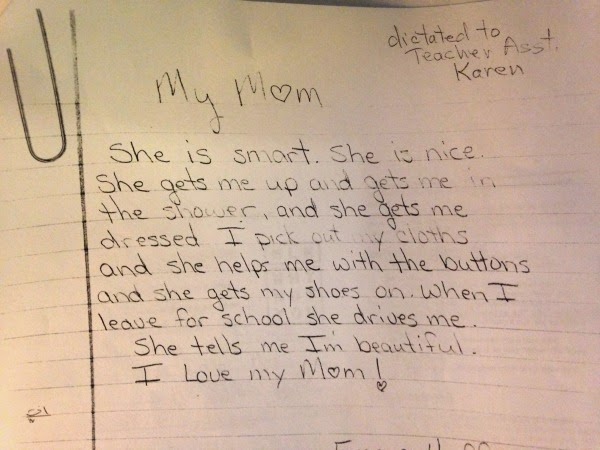 dictated to
Teacher Asst.
Karen
My Mom
She is smart. She is nice.
She gets me up and gets me in
the shower, and she gets me
dressed I pick out my cloths
and she helps me with the buttons
and she gets my shoes on. When I
leave for school she drives me.
She tells me I'm beautiful.
I Love my Mom!